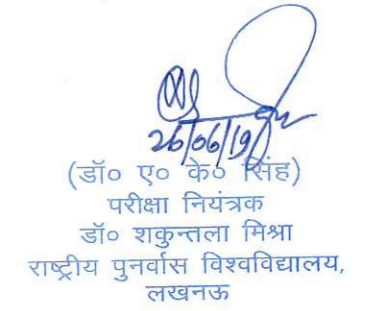 26/06/19
(डॉ० ए० के० सिंह)
परीक्षा नियंत्रक
डॉ० शकुन्तला मिश्रा
राष्ट्रीय पुनर्वास विश्वविद्यालय,
लखनऊ